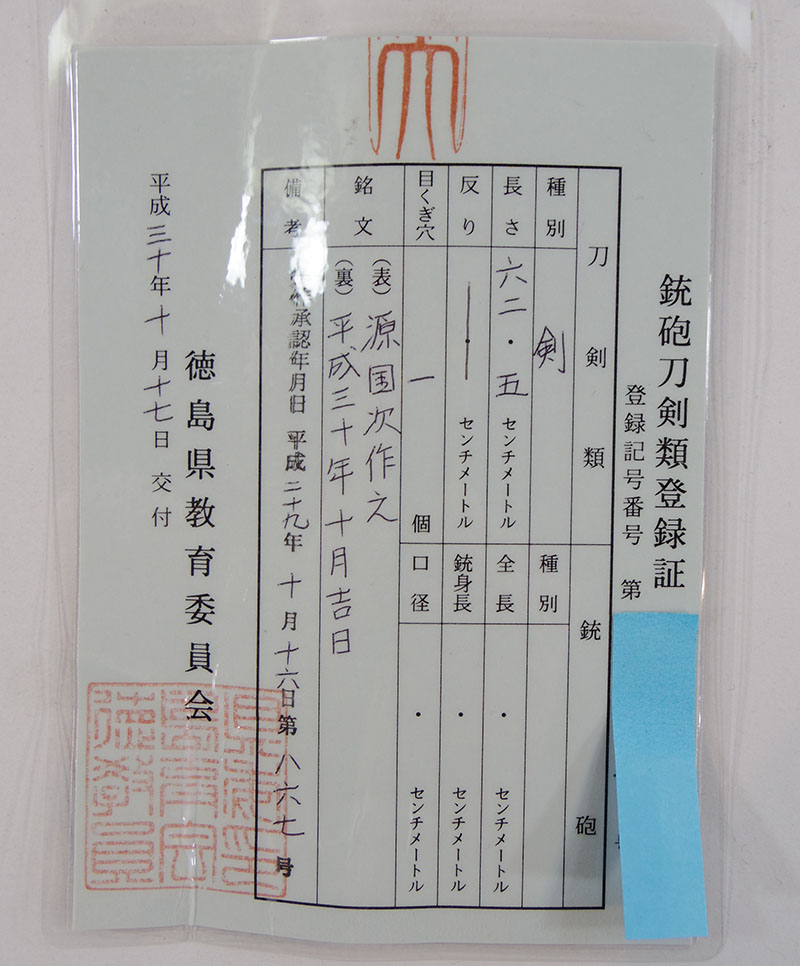 銃砲刀剣類登録証
登録記号番号 第
刀剣類
銃砲
種別 剣
種別
長さ 六二・五 センチメートル
全長 ・ センチメートル
反り ・ センチメートル
銃身長 ・ センチメートル
目くぎ穴 一 個
口径 ・ センチメートル
銘文
(表) 源国次作之
(裏) 平成三十年十月吉日
備考
承認年月日 平成二十九年十月十六日第八六七号
徳島県教育委員会
平成三十年十月十七日 交付